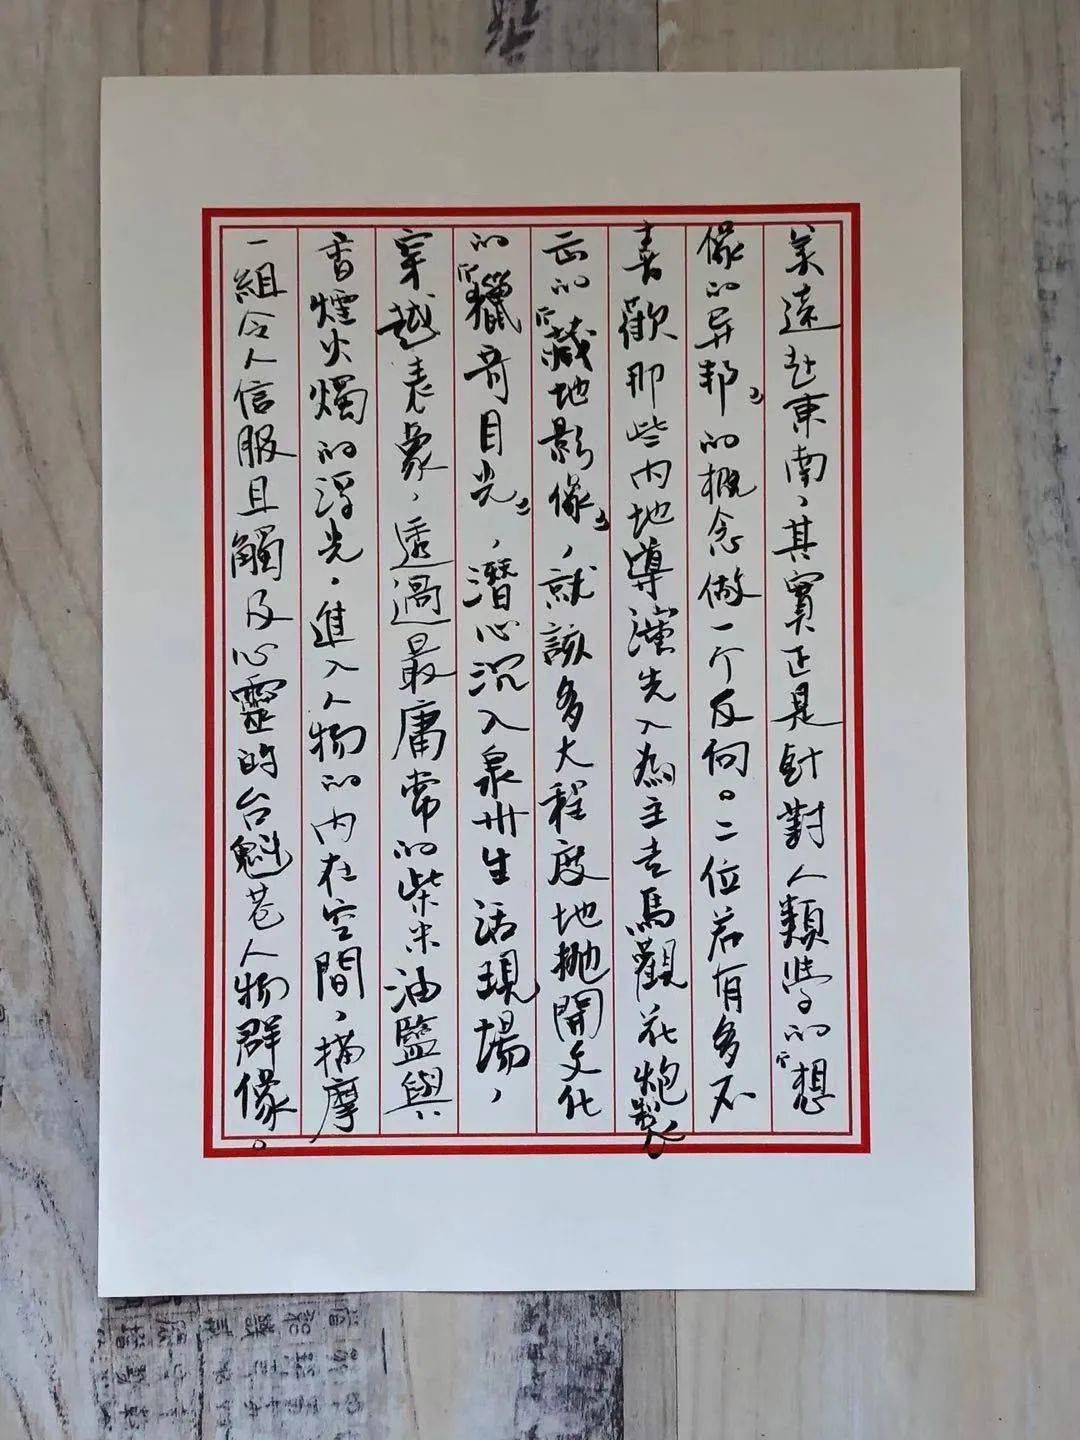 美遠赴東南，其實正是針對人類學的『想
像的异邦』的概念做一个反向。二位若有多不
喜歡那些内地導演先入為主走馬觀花炮製
出的『藏地影像』，就該多大程度地抛開文化
的『獵奇目光』，潛心沉入泉州生活現場，
穿越表象，透過最庸常的柴米油鹽與
香煙火燭的浮光，進入人物的内在空間，揣摩
一組令人信服且觸及心靈的台魁巷人物群像。